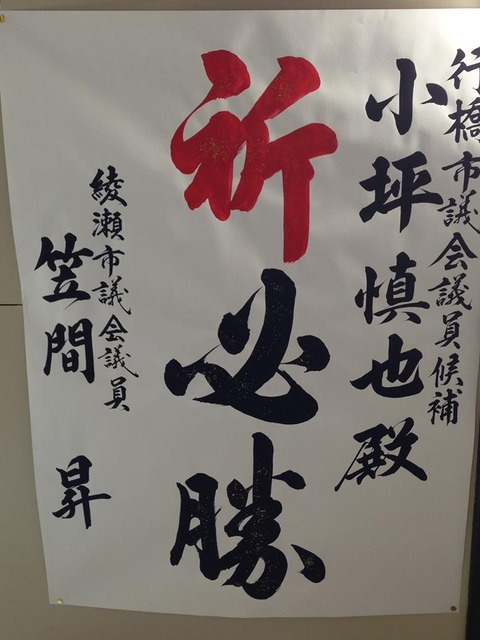 行橋市議会議員候補
小坪慎也殿
祈必勝
綾瀬市議会議員
笠間 昇